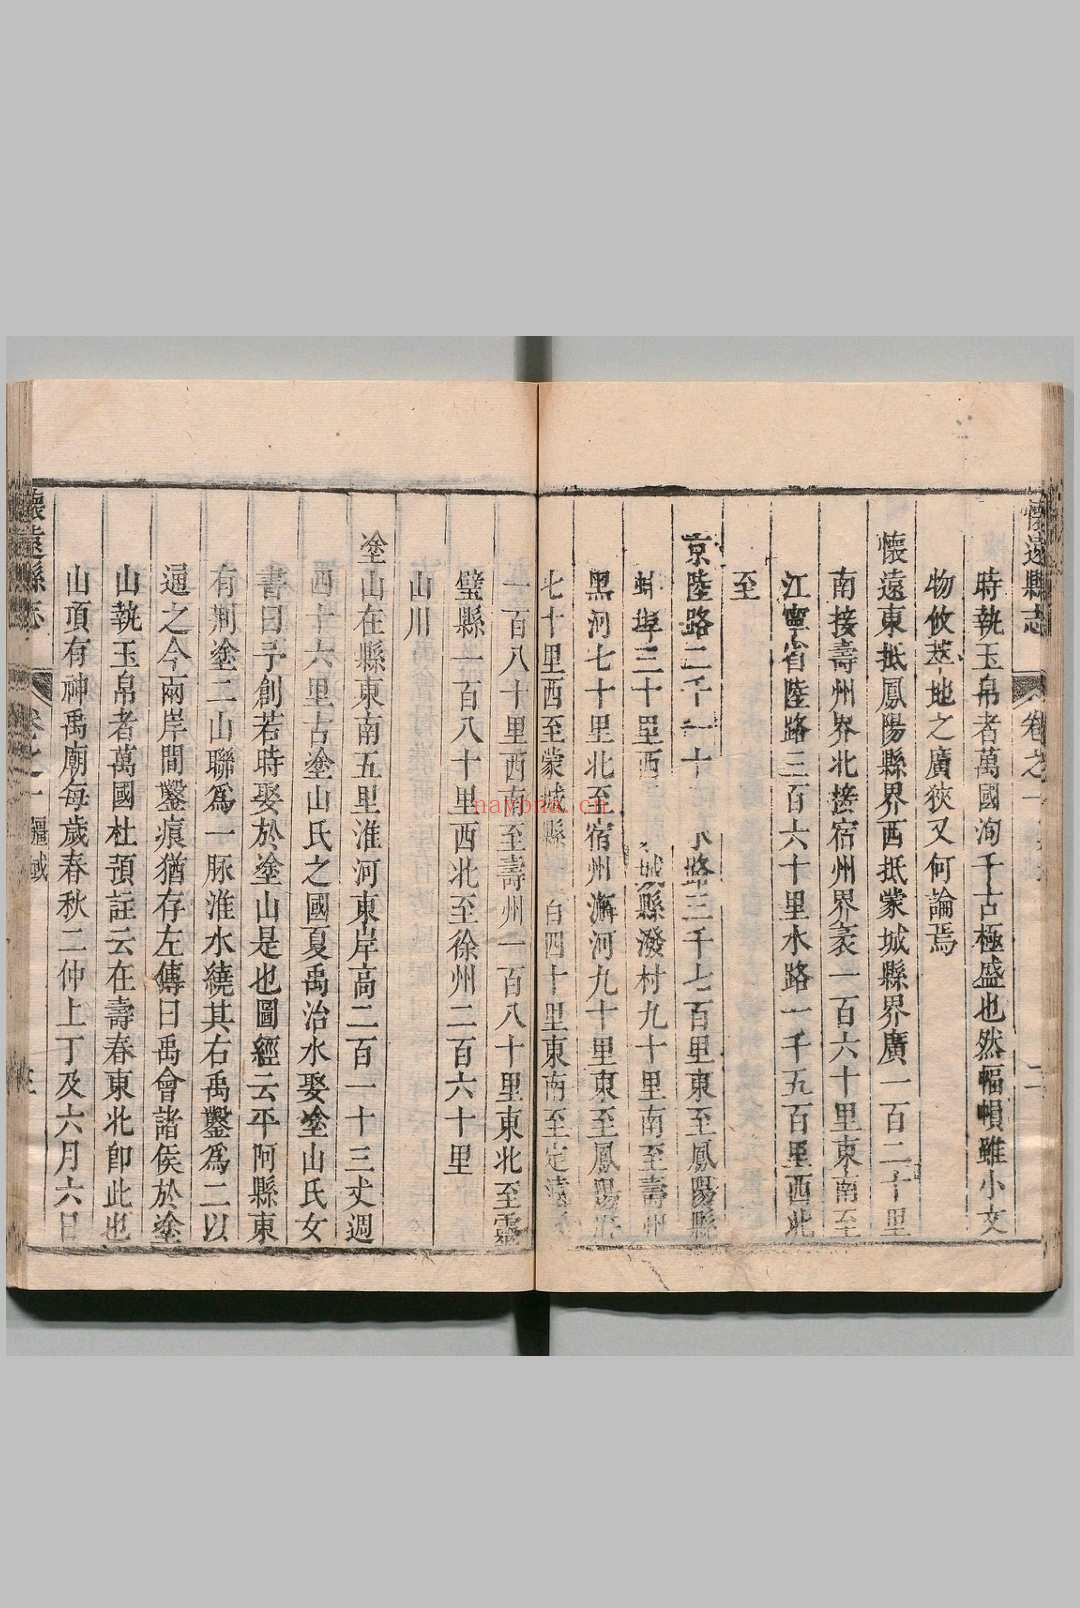 懷遠縣志
卷之一
二
時執玉帛者萬國洵千古極盛也然幅幀雖小文
物攸萃地之廣狹又何論焉
懷遠東抵鳳陽縣界西抵蒙城縣界廣一百二十里
南接壽州界北接宿州界袤一百六十里東南至
江寧省陸路三百六十里水路一千五百里西北
至
京陸路二千一十 水路三千七百里東至鳳陽縣
蚌埠三十里西 城縣潑村九十里南至壽州
黑河七十里北至宿州澥河九十里東至鳳陽府
七十里西至蒙城縣 百四十里東南至定遠
一百八十里西南至壽州一百八十里東北至靈
璧縣一百八十里西北至徐州二百六十里
山川
塗山在縣東南五里淮河東岸高二百一十三丈週
西十六里古塗山氏之國夏禹治水娶塗山氏女
書曰予創若時娶於塗山是也圖經云平阿縣東
有荆塗二山聯爲一脉淮水繞其右禹鑿爲二以
通之今兩岸間鑿痕猶存左傳曰禹會諸侯於塗
山執玉帛者萬國杜預註云在壽春東北卽此也
山頂有神禹廟每歲春秋二仲上丁及六月六日
懷遠縣志
卷之一
疆域
nayona.cn